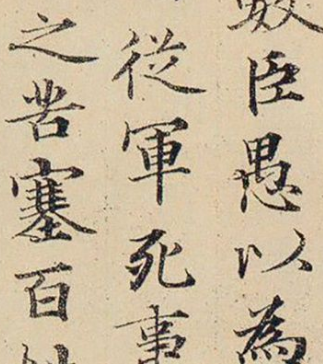 數臣愚以為
從軍死事
之苦塞百